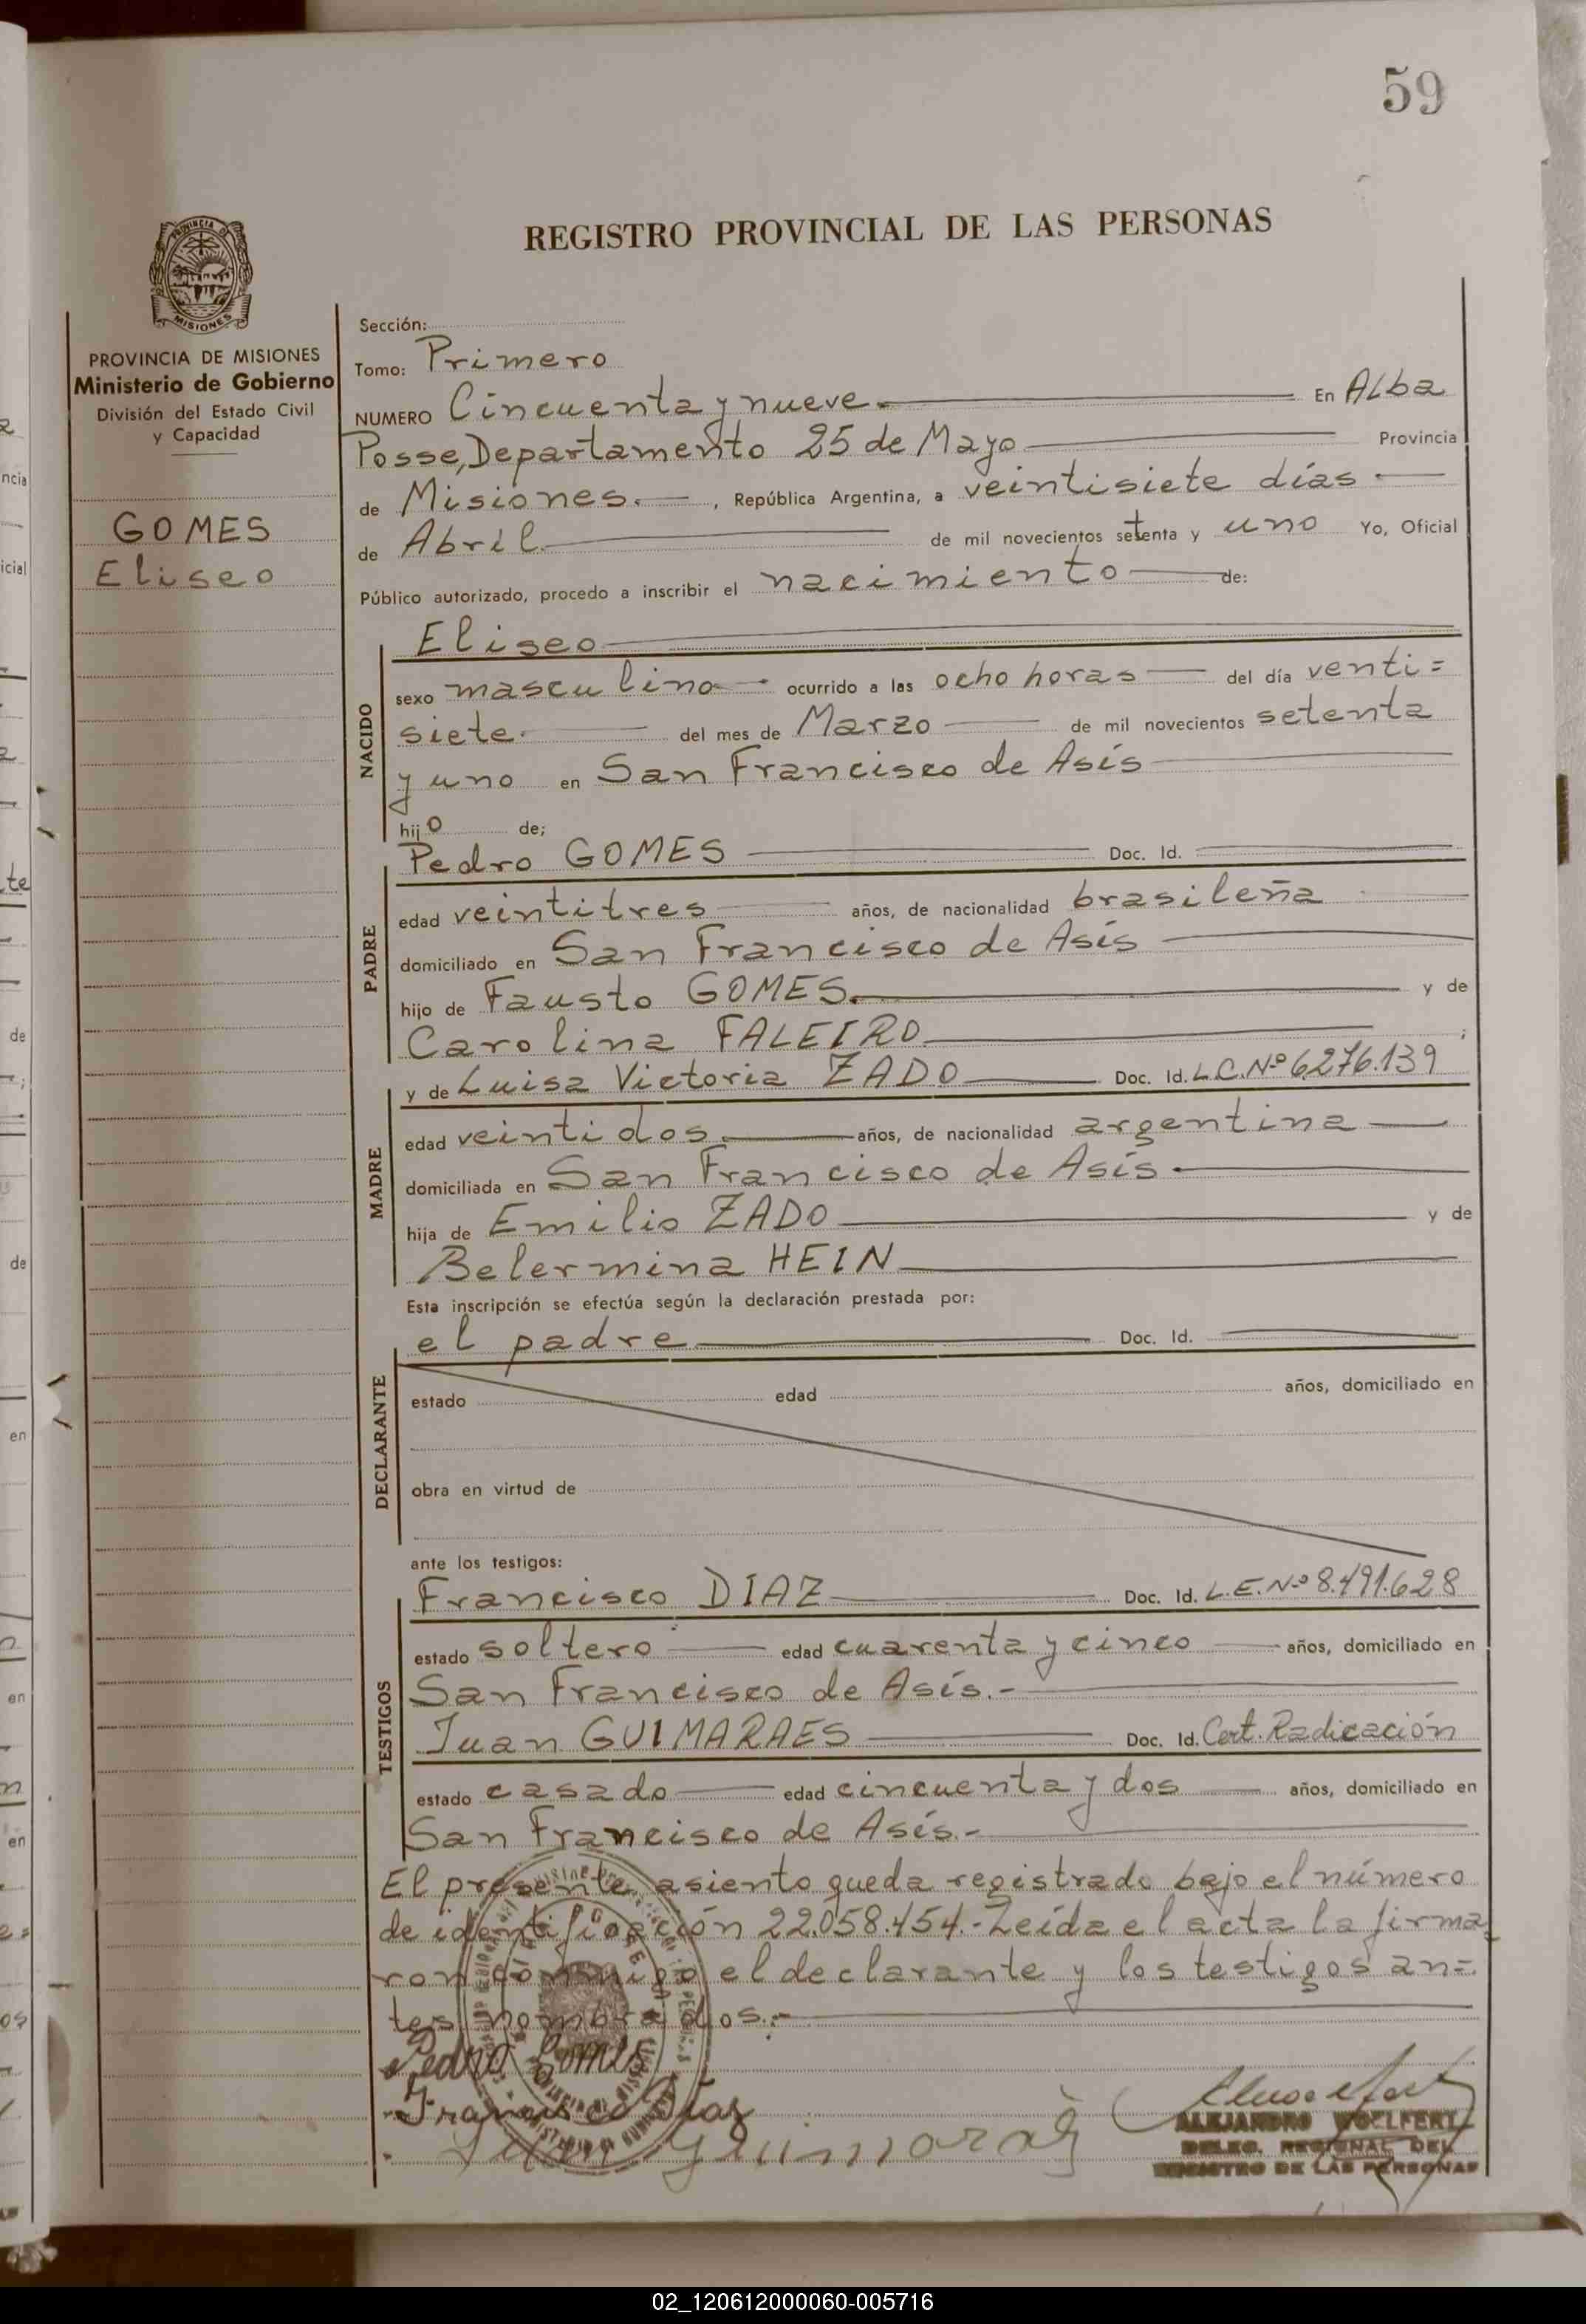 59
REGISTRO PROVINCIAL DE LAS PERSONAS
PROVINCIA DE MISIONES
Ministerio de Gobierno
División del Estado Civil
y Capacidad
GOMES
Eliseo
Sección:
Tomo: Primero
NUMERO Cincuenta y nueve. En ALba
Posse, Departamento 25 de Mayo Provincia
de Misiones. , República Argentina, a veintisiete días
de Abril. de mil novecientos setenta y uno Yo, Oficial
Público autorizado, procedo a inscribir el nacimiento de:
NACIDO
Eliseo
sexo masculino ocurrido a las ocho horas del día venti=
siete. del mes de Marzo de mil novecientos setenta
y uno en San Francisco de Asís
hijo de;
PADRE
Pedro GOMES Doc. Id.
edad veintitres años, de nacionalidad brasileña
domiciliado en San Francisco de Asís
hijo de Fausto GOMES. y de
Carolina FALEIRO. ;
MADRE
y de Luisa Victoria ZADO Doc. Id. L.C.Nº 6.276.139
edad veintidos. años, de nacionalidad argentina
domiciliada en San Francisco de Asís.
hija de Emilio ZADO y de
Belermina HEIN
Esta inscripción se efectúa según la declaración prestada por:
DECLARANTE
el padre Doc. Id.
estado edad años, domiciliado en
obra en virtud de
ante los testigos:
TESTIGOS
Francisco DIAZ Doc. Id. L.E.Nº 8.491.628
estado soltero edad cuarenta y cinco años, domiciliado en
San Francisco de Asís.-
Juan GUIMARAES Doc. Id. Cert. Radicación
estado casado edad cincuenta y dos años, domiciliado en
San Francisco de Asís.-
El presente asiento queda registrado bajo el número
de identificación 22.058.454.- Leída el acta la firma
ron conmigo el declarante y los testigos an=
tes nombrados.-
Pedro Gomes
Francisco Diaz
ALEJANDRO WOELFERT
DELEG. REGIONAL DEL
REGISTRO DE LAS PERSONAS
02_120612000060-005716